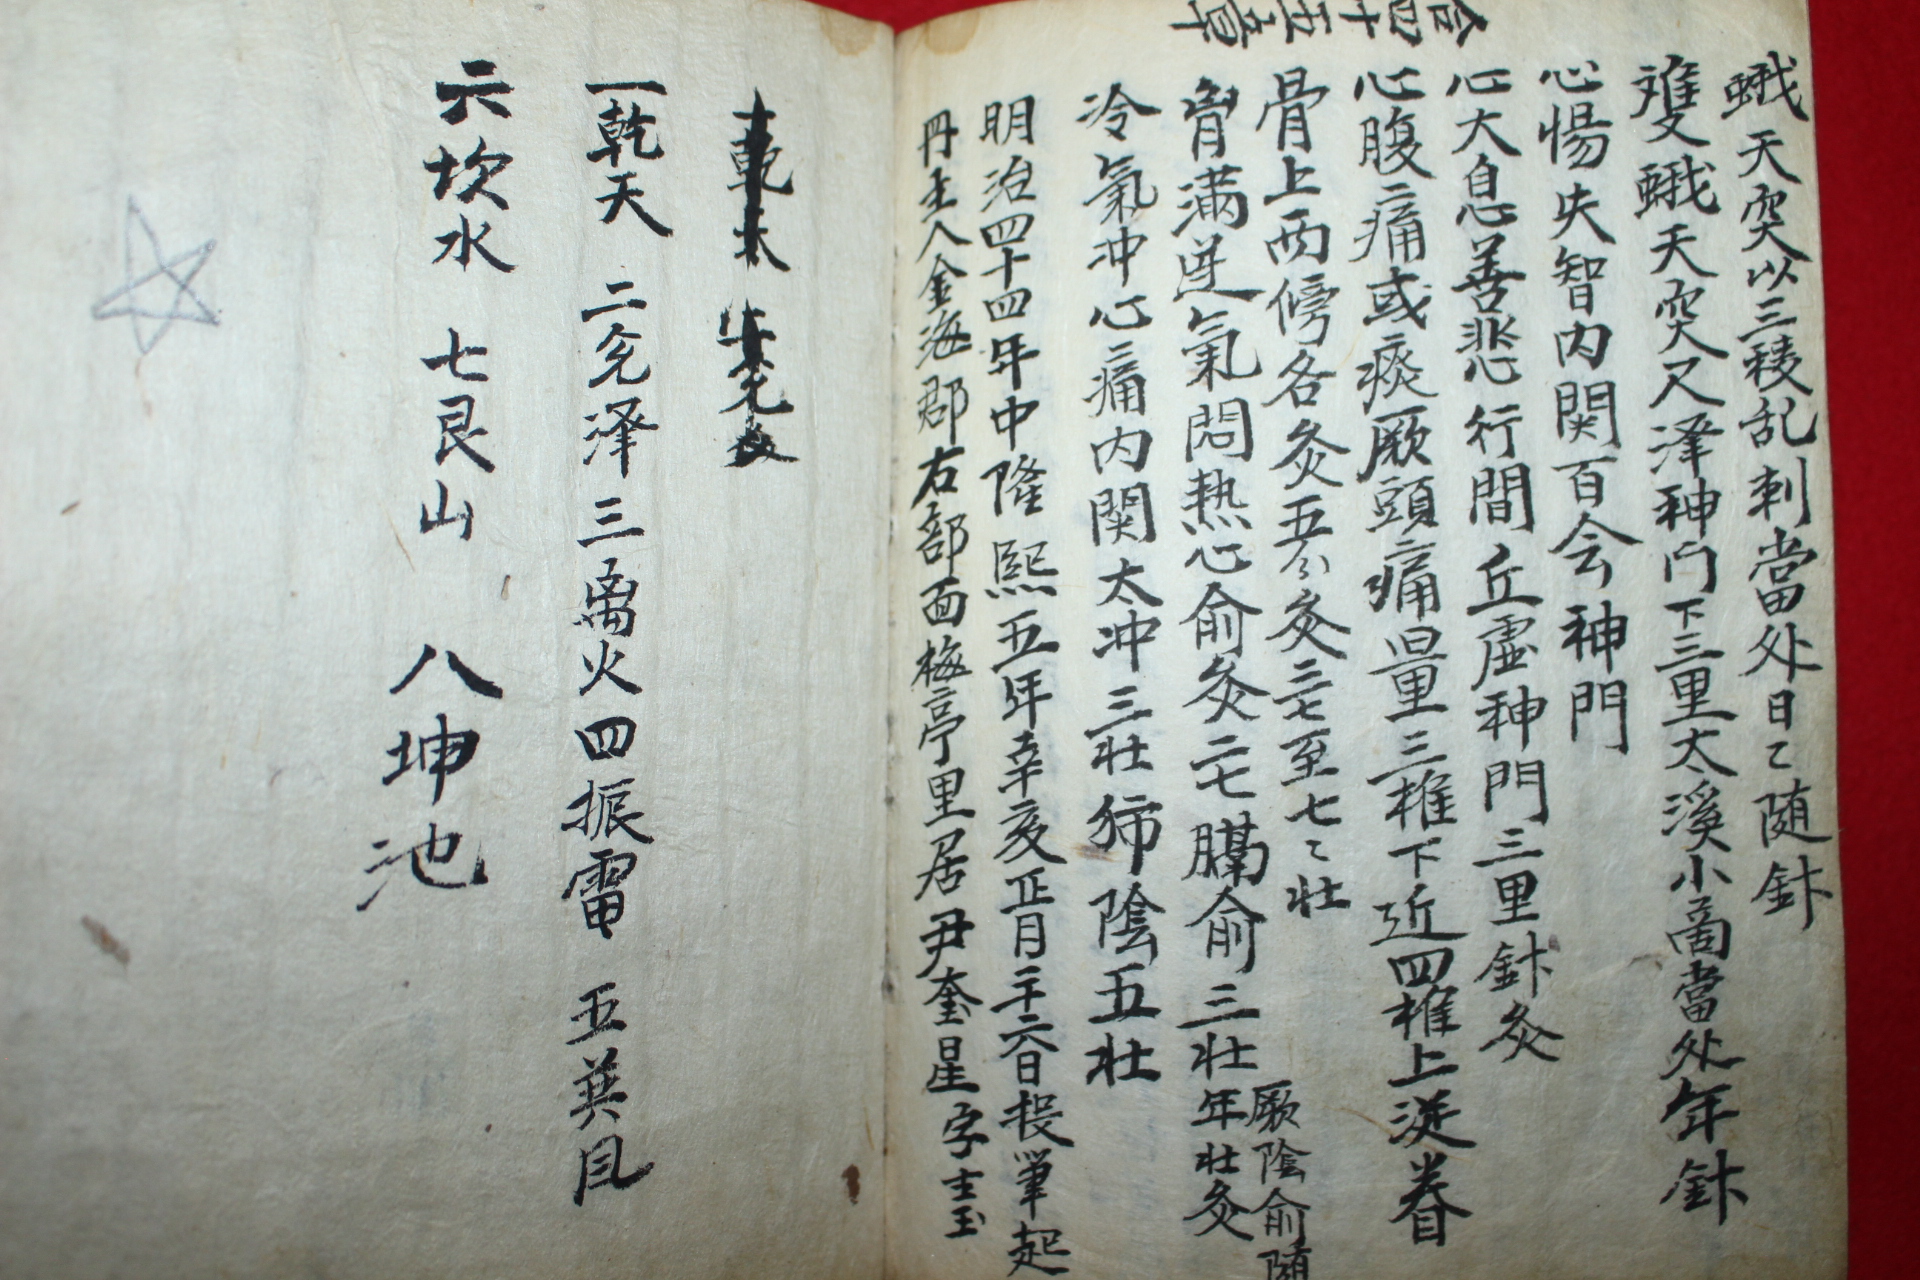 合四十五章
蛾天突以三稜乱刺當处日〻随針
雙蛾天突尺澤神门下三里太溪小商當处年針
心惕失智内関百会神門
心大息善悲行間丘虚神門三里針灸
心腹痛或痰厥頭痛量三椎下近四椎上从脊
骨上两傍各灸五〻灸三七至七〻壮
胷满逆氣悶熱心俞灸二七膈俞三壮年壮灸
厥陰俞随
冷氣冲心痛内関太冲三壮独陰五壮
明治四十四年中隆熙五年辛亥正月二十六日投筆起
冊主人金海郡右部面梅亭里居尹奎星字士玉
一乾天 二兌澤 三离火 四振雷 五巽风
六坎水 七艮山 八坤池